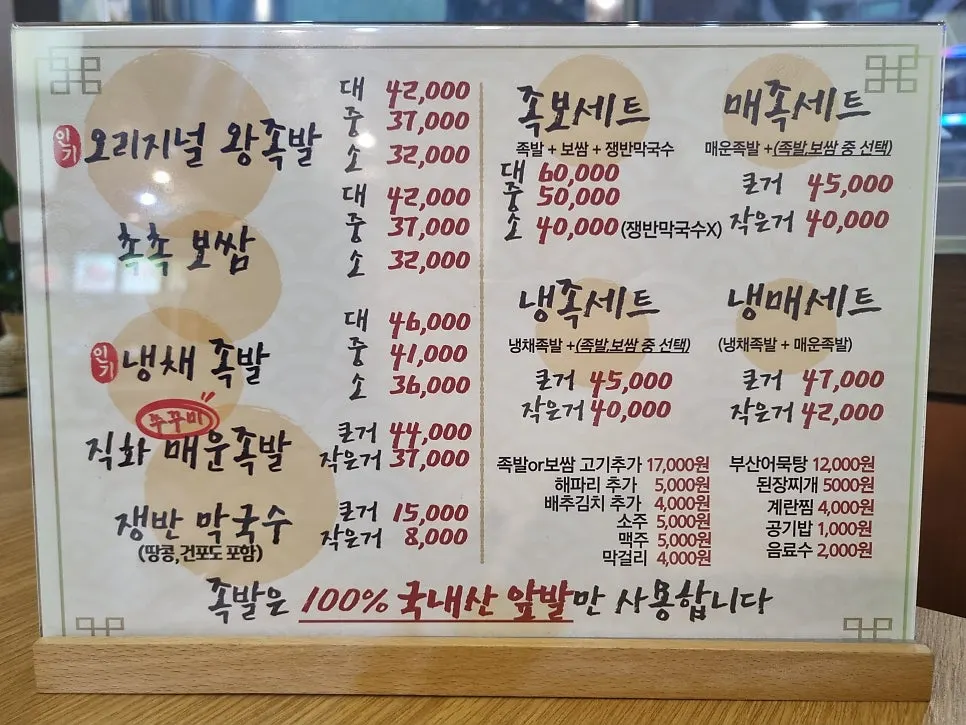 인기 오리지널 왕족발
대 42,000
중 37,000
소 32,000
촉촉 보쌈
대 42,000
중 37,000
소 32,000
인기 냉채 족발
대 46,000
중 41,000
소 36,000
쭈꾸미
직화 매운족발
큰거 44,000
작은거 37,000
쟁반 막국수
(땅콩,건포도 포함)
큰거 15,000
작은거 8,000
족보세트
족발 + 보쌈 + 쟁반막국수
대 60,000
중 50,000
소 40,000 (쟁반막국수X)
매족세트
매운족발 +(족발,보쌈 중 선택)
큰거 45,000
작은거 40,000
냉족세트
냉채족발 +(족발,보쌈 중 선택)
큰거 45,000
작은거 40,000
냉매세트
(냉채족발 + 매운족발)
큰거 47,000
작은거 42,000
족발or보쌈 고기추가 17,000원
해파리 추가 5,000원
배추김치 추가 4,000원
소주 5,000원
맥주 5,000원
막걸리 4,000원
부산어묵탕 12,000원
된장찌개 5000원
계란찜 4,000원
공기밥 1,000원
음료수 2,000원
족발은 100% 국내산 앞발만 사용합니다